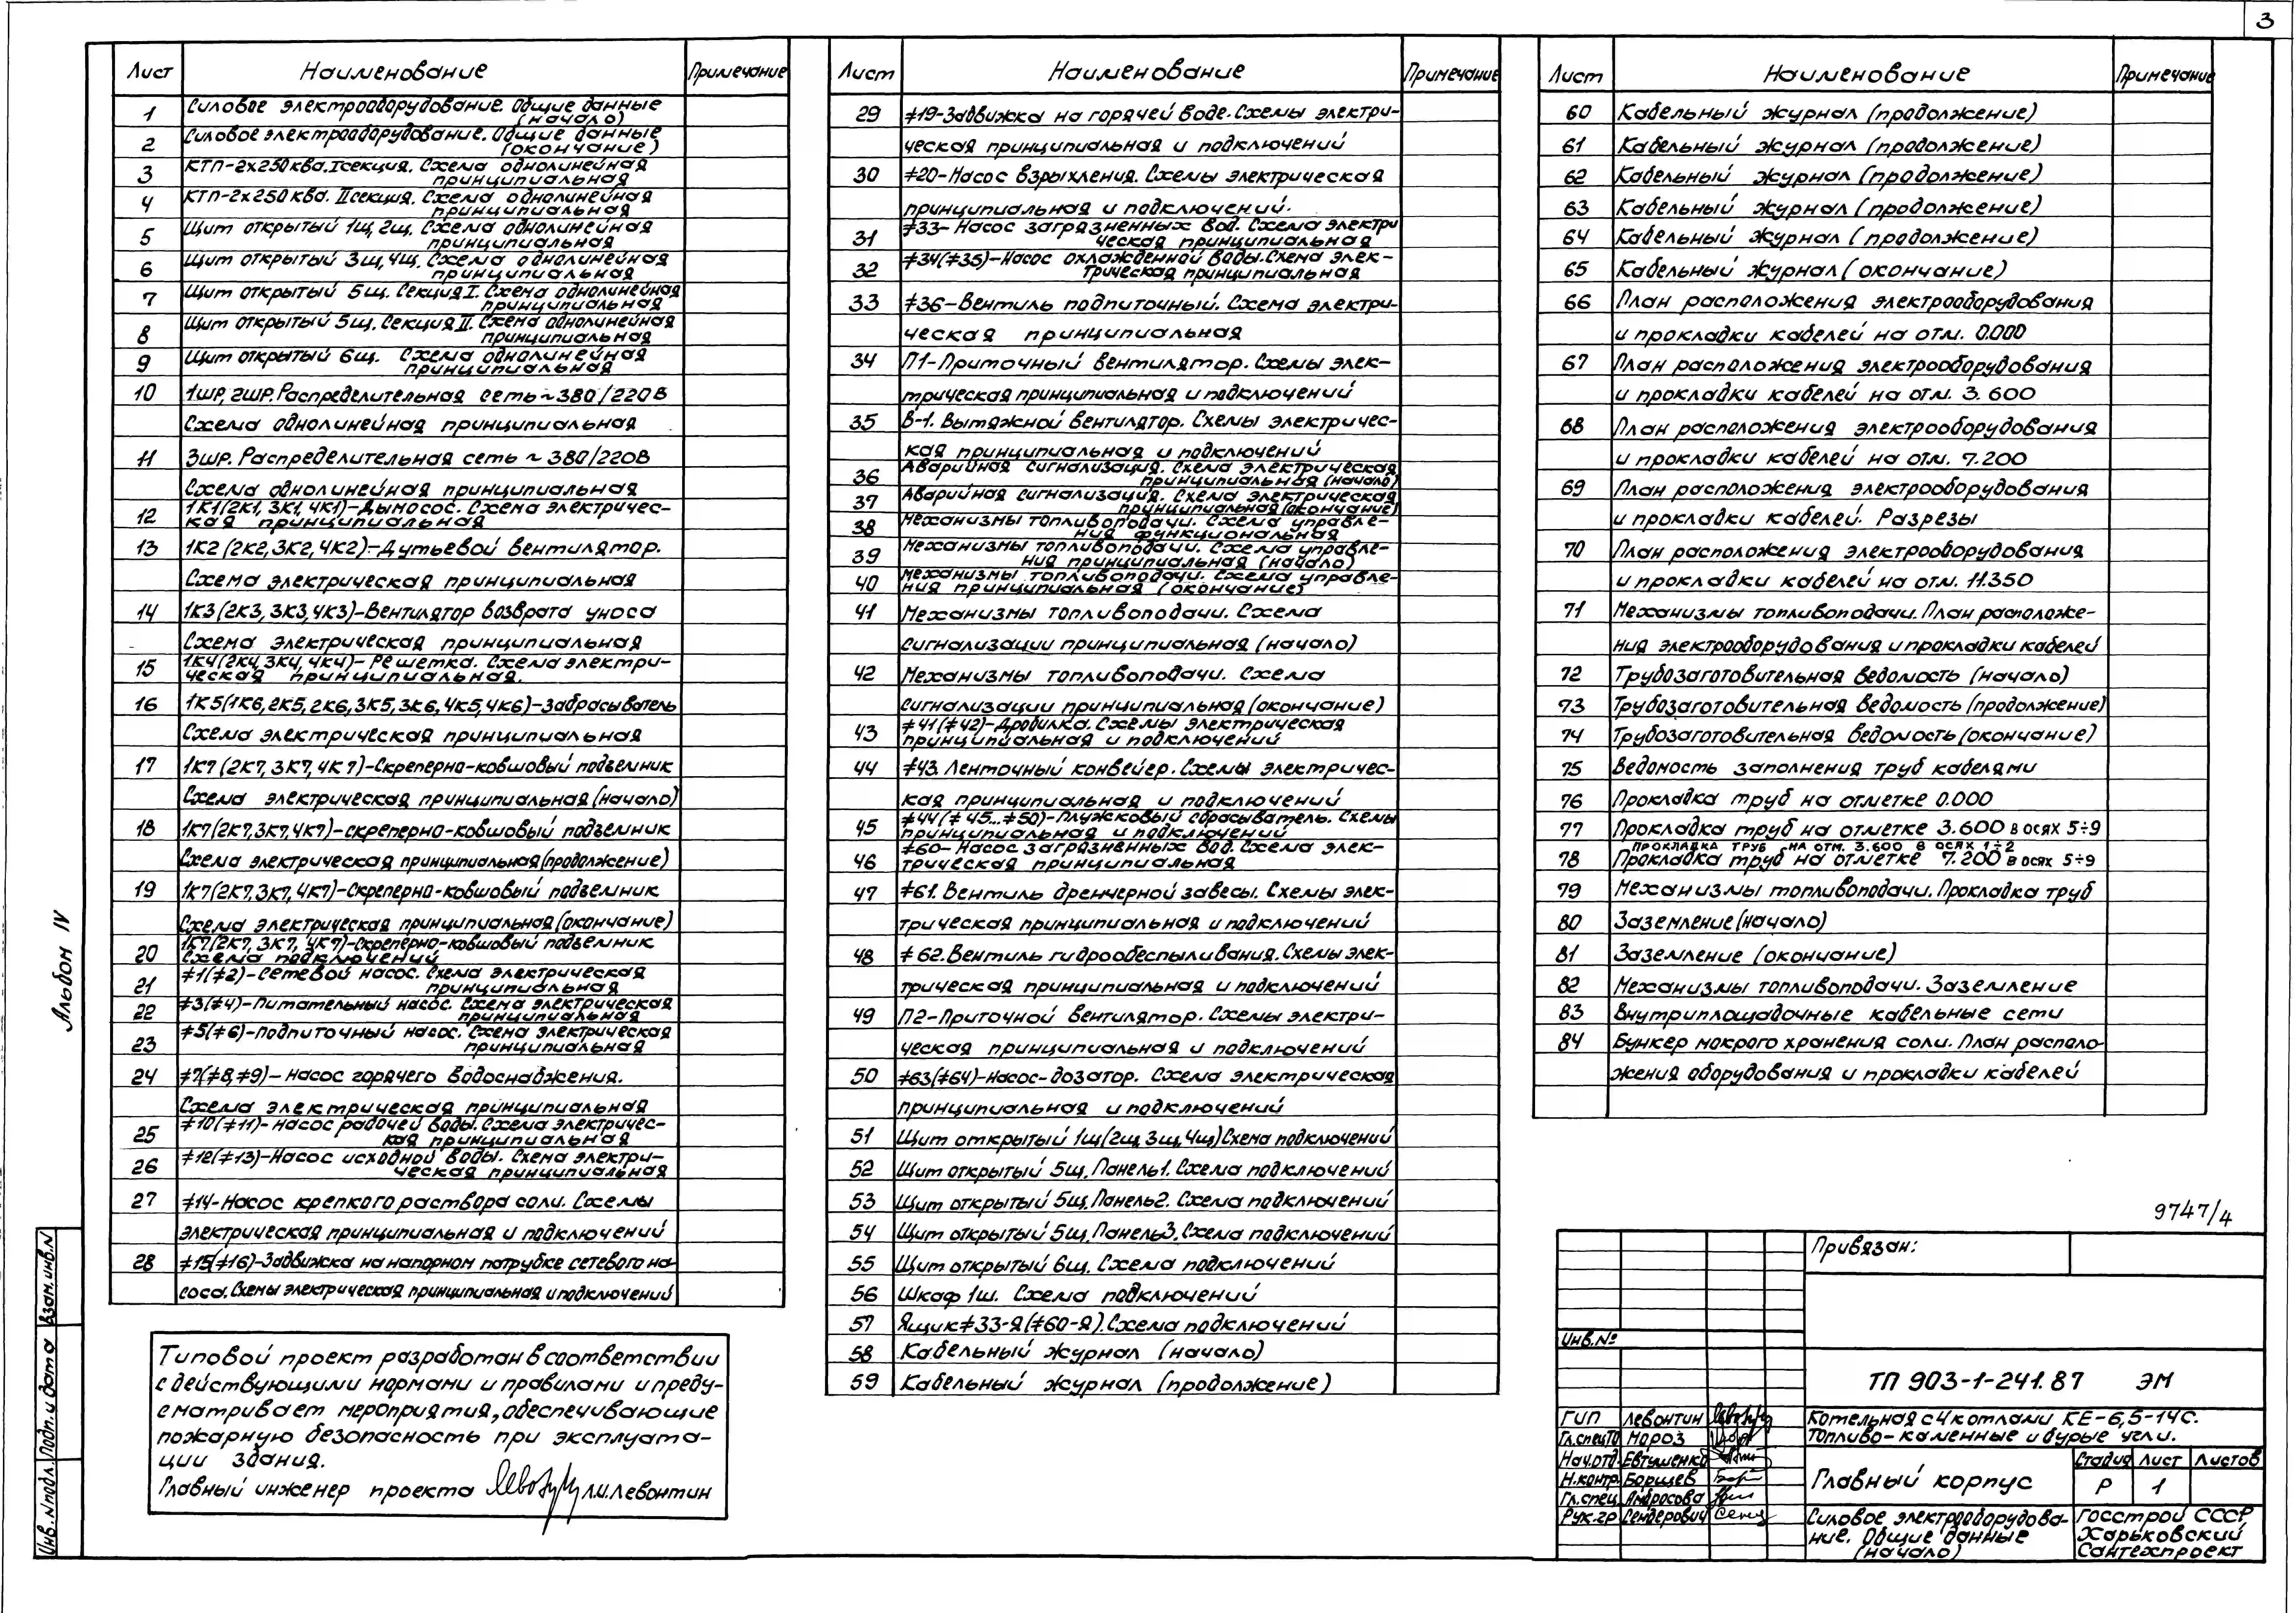 3
Лист Наименование Примечание
1 Силовое электрооборудование. Общие данные
(начало)
2 Силовое электрооборудование. Общие данные
(окончание)
3 КТП-2х250 ква. I секция. Схема однолинейная
принципиальная
4 КТП-2х250 ква. II секция. Схема однолинейная
принципиальная
5 Щит открытый 1щ, 2щ. Схема однолинейная
принципиальная
6 Щит открытый 3щ, 4щ. Схема однолинейная
принципиальная
7 Щит открытый 5щ. Секция I. Схема однолинейная
принципиальная
8 Щит открытый 5щ. Секция II. Схема однолинейная
принципиальная
9 Щит открытый 6щ. Схема однолинейная
принципиальная
10 1ШР, 2ШР. Распределительная сеть ~380/220В
Схема однолинейная принципиальная
11 3ШР. Распределительная сеть ~ 380/220В
Схема однолинейная принципиальная
12 1К1(2К1, 3К1, 4К1)-Дымосос. Схема электричес-
кая принципиальная
13 1К2 (2К2, 3К2, 4К2)-Дутьевой вентилятор.
Схема электрическая принципиальная
14 1К3(2К3, 3К3, 4К3)-Вентилятор возврата уноса
Схема электрическая принципиальная
15 1К4(2К4, 3К4, 4К4)-Решетка. Схема электри-
ческая принципиальная.
16 1К5(1К6, 2К5, 2К6, 3К5, 3К6, 4К5, 4К6)-Забрасыватель
Схема электрическая принципиальная
17 1К7 (2К7, 3К7, 4К7)-Скреперно-ковшовый подъемник
Схема электрическая принципиальная (начало)
18 1К7(2К7, 3К7, 4К7)-скреперно-ковшовый подъемник
Схема электрическая принципиальная (продолжение)
19 1К7(2К7, 3К7, 4К7)-Скреперно-ковшовый подъемник
Схема электрическая принципиальная (окончание)
20 1К7(2К7, 3К7, 4К7)-Скреперно-ковшовый подъемник
Схема подключений
21 ≠1(≠2)-Сетевой насос. Схема электрическая
принципиальная
22 ≠3(≠4)-Питательный насос. Схема электрическая
принципиальная
23 ≠5(≠6)-Подпиточный насос. Схема электрическая
принципиальная
24 ≠7(≠8, ≠9)-Насос горячего водоснабжения.
Схема электрическая принципиальная
25 ≠10(≠11)-Насос рабочей воды. Схема электричес-
кая принципиальная
26 ≠12(≠13)-Насос исходной воды. Схема электри-
ческая принципиальная
27 ≠14-Насос крепкого раствора соли. Схемы
электрическая принципиальная и подключений
28 ≠15(≠16)-Задвижка на напорном патрубке сетевого на-
соса. Схемы электрическая принципиальная и подключений
Лист Наименование Примечание
29 ≠19-Задвижка на горячей воде. Схемы электри-
ческая принципиальная и подключений
30 ≠20-Насос взрыхления. Схемы электрическая
принципиальная и подключений.
31 ≠33-Насос загрязненных вод. Схема электри
ческая принципиальная
32 ≠34(≠35)-Насос охлажденной воды. Схема элек-
трическая принципиальная
33 ≠36-Вентиль подпиточный. Схема электри-
ческая принципиальная
34 П1-Приточный вентилятор. Схемы элек-
трическая принципиальная и подключений
35 В-1. Вытяжной вентилятор. Схемы электричес-
кая принципиальная и подключений
36 Аварийная сигнализация. Схема электрическая
принципиальная (начало)
37 Аварийная сигнализация. Схема электрическая
принципиальная (окончание)
38 Механизмы топливоподачи. Схема управле-
ния функциональная
39 Механизмы топливоподачи. Схема управле-
ния принципиальная (начало)
40 Механизмы топливоподачи. Схема управле-
ния принципиальная (окончание)
41 Механизмы топливоподачи. Схема
сигнализации принципиальная (начало)
42 Механизмы топливоподачи. Схема
сигнализации принципиальная (окончание)
43 ≠41(≠42)-Дробилка. Схемы электрическая
принципиальная и подключений
44 ≠43. Ленточный конвейер. Схемы электричес-
кая принципиальная и подключений
45 ≠44(≠45...≠50)-Плужковый сбрасыватель. Схемы
принципиальная и подключений
46 ≠60-Насос загрязненных вод. Схема элек-
трическая принципиальная
47 ≠61. Вентиль дренчерной завесы. Схемы элек-
трическая принципиальная и подключений
48 ≠62. Вентиль гидрообеспыливания. Схемы элек-
трическая принципиальная и подключений
49 П2-Приточной вентилятор. Схемы электри-
ческая принципиальная и подключений
50 ≠63(≠64)-Насос-дозатор. Схема электрическая
принципиальная и подключений
51 Щит открытый 1щ(2щ, 3щ, 4щ) Схема подключений
52 Щит открытый 5щ. Панель 1. Схема подключений
53 Щит открытый 5щ. Панель 2. Схема подключений
54 Щит открытый 5щ. Панель 3. Схема подключений
55 Щит открытый 6щ. Схема подключений
56 Шкаф 1ш. Схема подключений
57 Ящик ≠33-Я(≠60-Я). Схема подключений
58 Кабельный журнал (начало)
59 Кабельный журнал (продолжение)
Лист Наименование Примечание
60 Кабельный журнал (продолжение)
61 Кабельный журнал (продолжение)
62 Кабельный журнал (продолжение)
63 Кабельный журнал (продолжение)
64 Кабельный журнал (продолжение)
65 Кабельный журнал (окончание)
66 План расположения электрооборудования
и прокладки кабелей на отм. 0.000
67 План расположения электрооборудования
и прокладки кабелей на отм. 3.600
68 План расположения электрооборудования
и прокладки кабелей на отм. 7.200
69 План расположения электрооборудования
и прокладки кабелей. Разрезы
70 План расположения электрооборудования
и прокладки кабелей на отм. 11.350
71 Механизмы топливоподачи. План расположе-
ния электрооборудования и прокладки кабелей
72 Трубозаготовительная ведомость (начало)
73 Трубозаготовительная ведомость (продолжение)
74 Трубозаготовительная ведомость (окончание)
75 Ведомость заполнения труб кабелями
76 Прокладка труб на отметке 0.000
77 Прокладка труб на отметке 3.600 в осях 5÷9
Прокладка труб на отм. 3.600 в осях 1÷2
78 Прокладка труб на отметке 7.200 в осях 5÷9
79 Механизмы топливоподачи. Прокладка труб
80 Заземление (начало)
81 Заземление (окончание)
82 Механизмы топливоподачи. Заземление
83 Внутриплощадочные кабельные сети
84 Бункер мокрого хранения соли. План располо-
жения оборудования и прокладки кабелей
Альбом IV
Инв. № подл. Подп. и дата Взам. инв. №
Типовой проект разработан в соответствии
с действующими нормами и правилами и преду-
сматривает мероприятия, обеспечивающие
пожарную безопасность при эксплуата-
ции здания.
Главный инженер проекта Л.И. Левонтин
9747/4
Привязан:
Инв. №
ТП 903-1-241.87 ЭМ
ГИП Левонтин
Гл. спец ТО Мороз
Нач. отд. Евтушенко
Н. контр. Борщев
Гл. спец. Амбросова
Рук. гр Сендерович
Котельная с 4 котлами КЕ-6,5-14С.
Топливо-каменные и бурые угли.
Главный корпус
Стадия Лист Листов
Р 1
Силовое электрооборудова-
ние. Общие данные
(начало)
Госстрой СССР
Харьковский
Сантехпроект